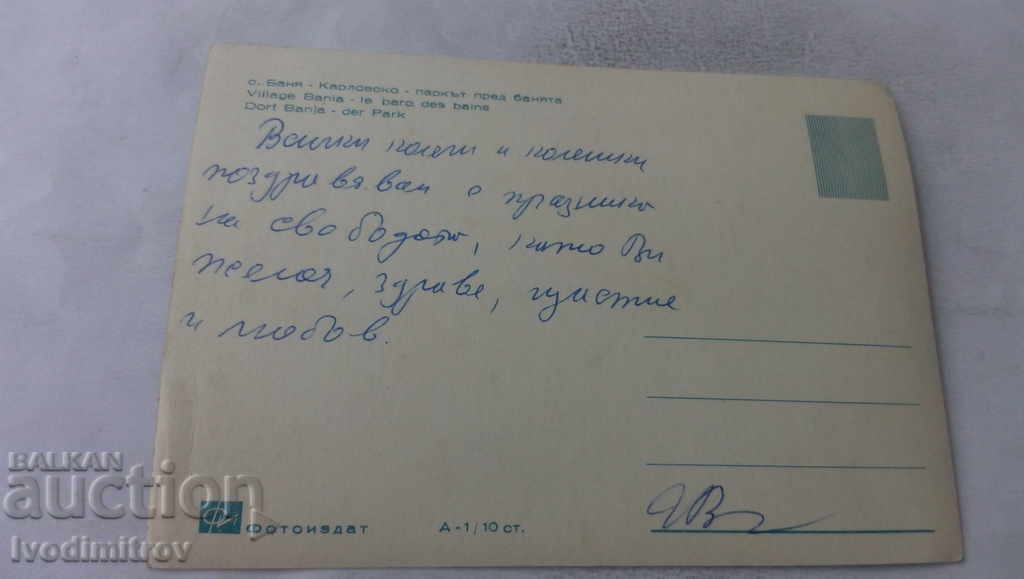 с. Баня - Карловско - паркът пред банята
Village Bania - le parc des bains
Dorf Banja - der Park
Всички колеги и колежки
поздравявам с празника
на свободата, като Ви
желая, здраве, щастие
и любов.
Фотоиздат
А-1/10 ст.
BALKAN
auction
Ivodimitrov